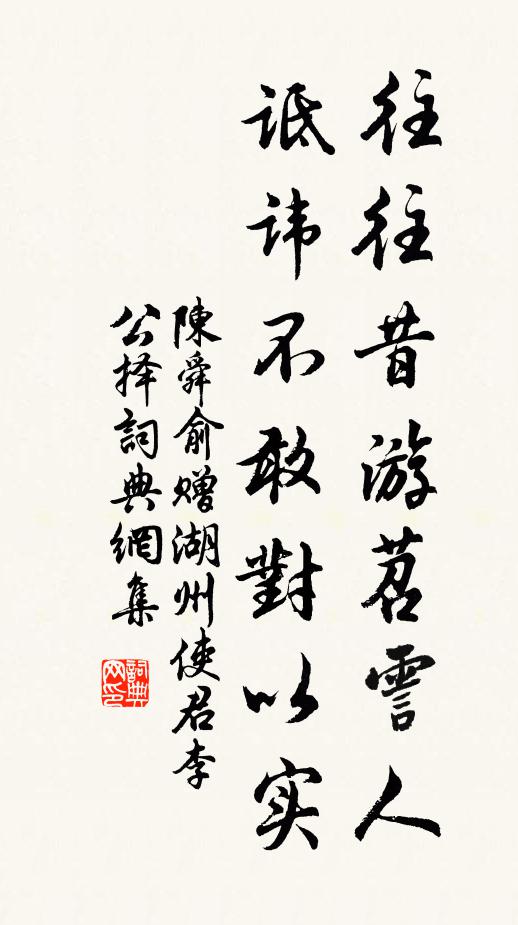 往往昔游苕霅人
诋讳不敢對以实
陳舜俞赠湖州使君李
公择詞典網集
詞典网印